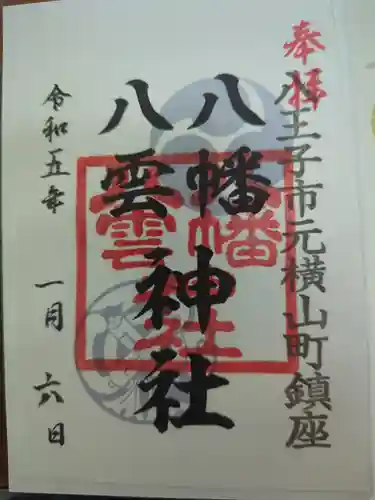 奉拝
八王子市元横山町鎮座
八幡
八雲
神社
令和五年 一月 六日